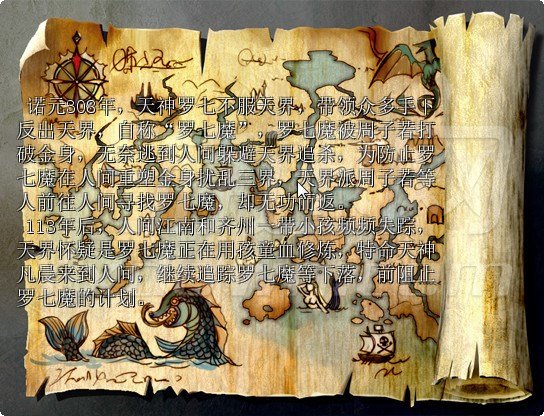 诺元303年，天神罗七不服天界，带领众多手下
反出天界，自称“罗七魔”，罗七魔被周子若打
破金身，无奈逃到人间躲避天界追杀，为防止罗
七魔在人间重塑金身扰乱三界，天界派周子若等
人前往人间寻找罗七魔，却无功而返。
113年后，人间江南和齐州一带小孩频频失踪，
天界怀疑是罗七魔正在用孩童血修炼，特命天神
儿晨来到人间，继续追踪罗七魔等下落，前阻止
罗七魔的计划。